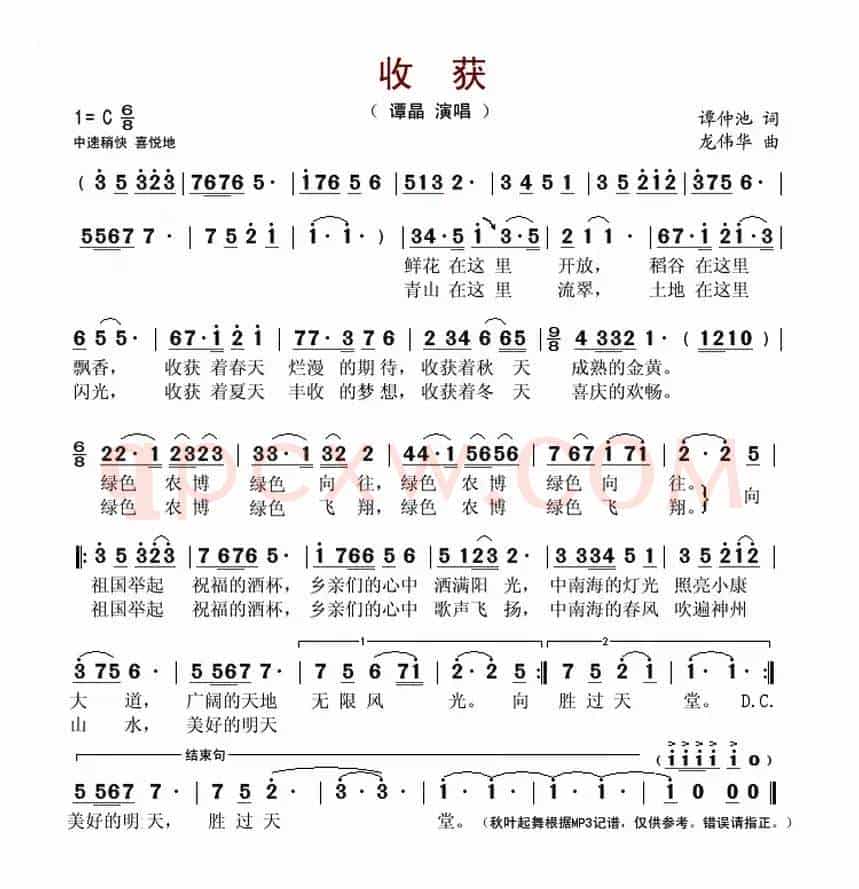 收 获
( 谭晶 演唱 )
1= C 6/8
谭仲池 词
中速稍快 喜悦地
龙伟华 曲
( 3 5 323 | 7676 5· | 176 5 6 | 513 2· | 3 4 5 1 | 3 5 212 | 375 6· |
5567 7· | 7 5 2 1 | 1· 1· ) | 34·5 1 3·5 | 2 1 1· | 67·1 2 1·3 |
鲜花 在这 里 开放， 稻谷 在这里
青山 在这 里 流翠， 土地 在这里
6 5 5· | 67·1 2 1 | 77·3 7 6 | 2 34 6 65 | 9/8 4 332 1· ( 1210 ) |
飘香， 收获 着春天 烂漫 的期待，收获着秋 天 成熟的金黄。
闪光， 收获 着夏天 丰收 的梦想，收获着冬 天 喜庆的欢畅。
6/8 22·1 2323 | 33·1 32 2 | 44·1 5656 | 7 67 1 71 | 2· 2 5 |
绿色 农博 绿色 向 往，绿色 农博 绿色 向 往。
绿色 农博 绿色 飞 翔，绿色 农博 绿色 飞 翔。} 向
‖: 3 5 323 | 7 676 5· | 1 766 5 6 | 5 123 2· | 3 334 5 1 | 3 5 212 |
祖国举起 祝福的酒杯，乡亲们的心中 洒满阳 光，中南海的灯光 照亮小康
祖国举起 祝福的酒杯，乡亲们的心中 歌声飞 扬，中南海的春风 吹遍神州
1 2
3 75 6· | 5 567 7· | 7 5 6 71 | 2· 2 5 :‖ 7 5 2 1 | 1· 1· :‖
大 道， 广阔的天地 无 限 风 光。 向 胜 过 天 堂。 D.C.
山 水，美好的明天
结束句
( 1 1 1 1 1 0 )
5 567 7· | 7 5 2· | 3· 3· | 1· 1· | 1· 1· | 1 0 0 0 ‖
美好的明 天， 胜 过 天 堂。（秋叶起舞根据MP3记谱，仅供参考。错误请指正。）
qpcxw.com